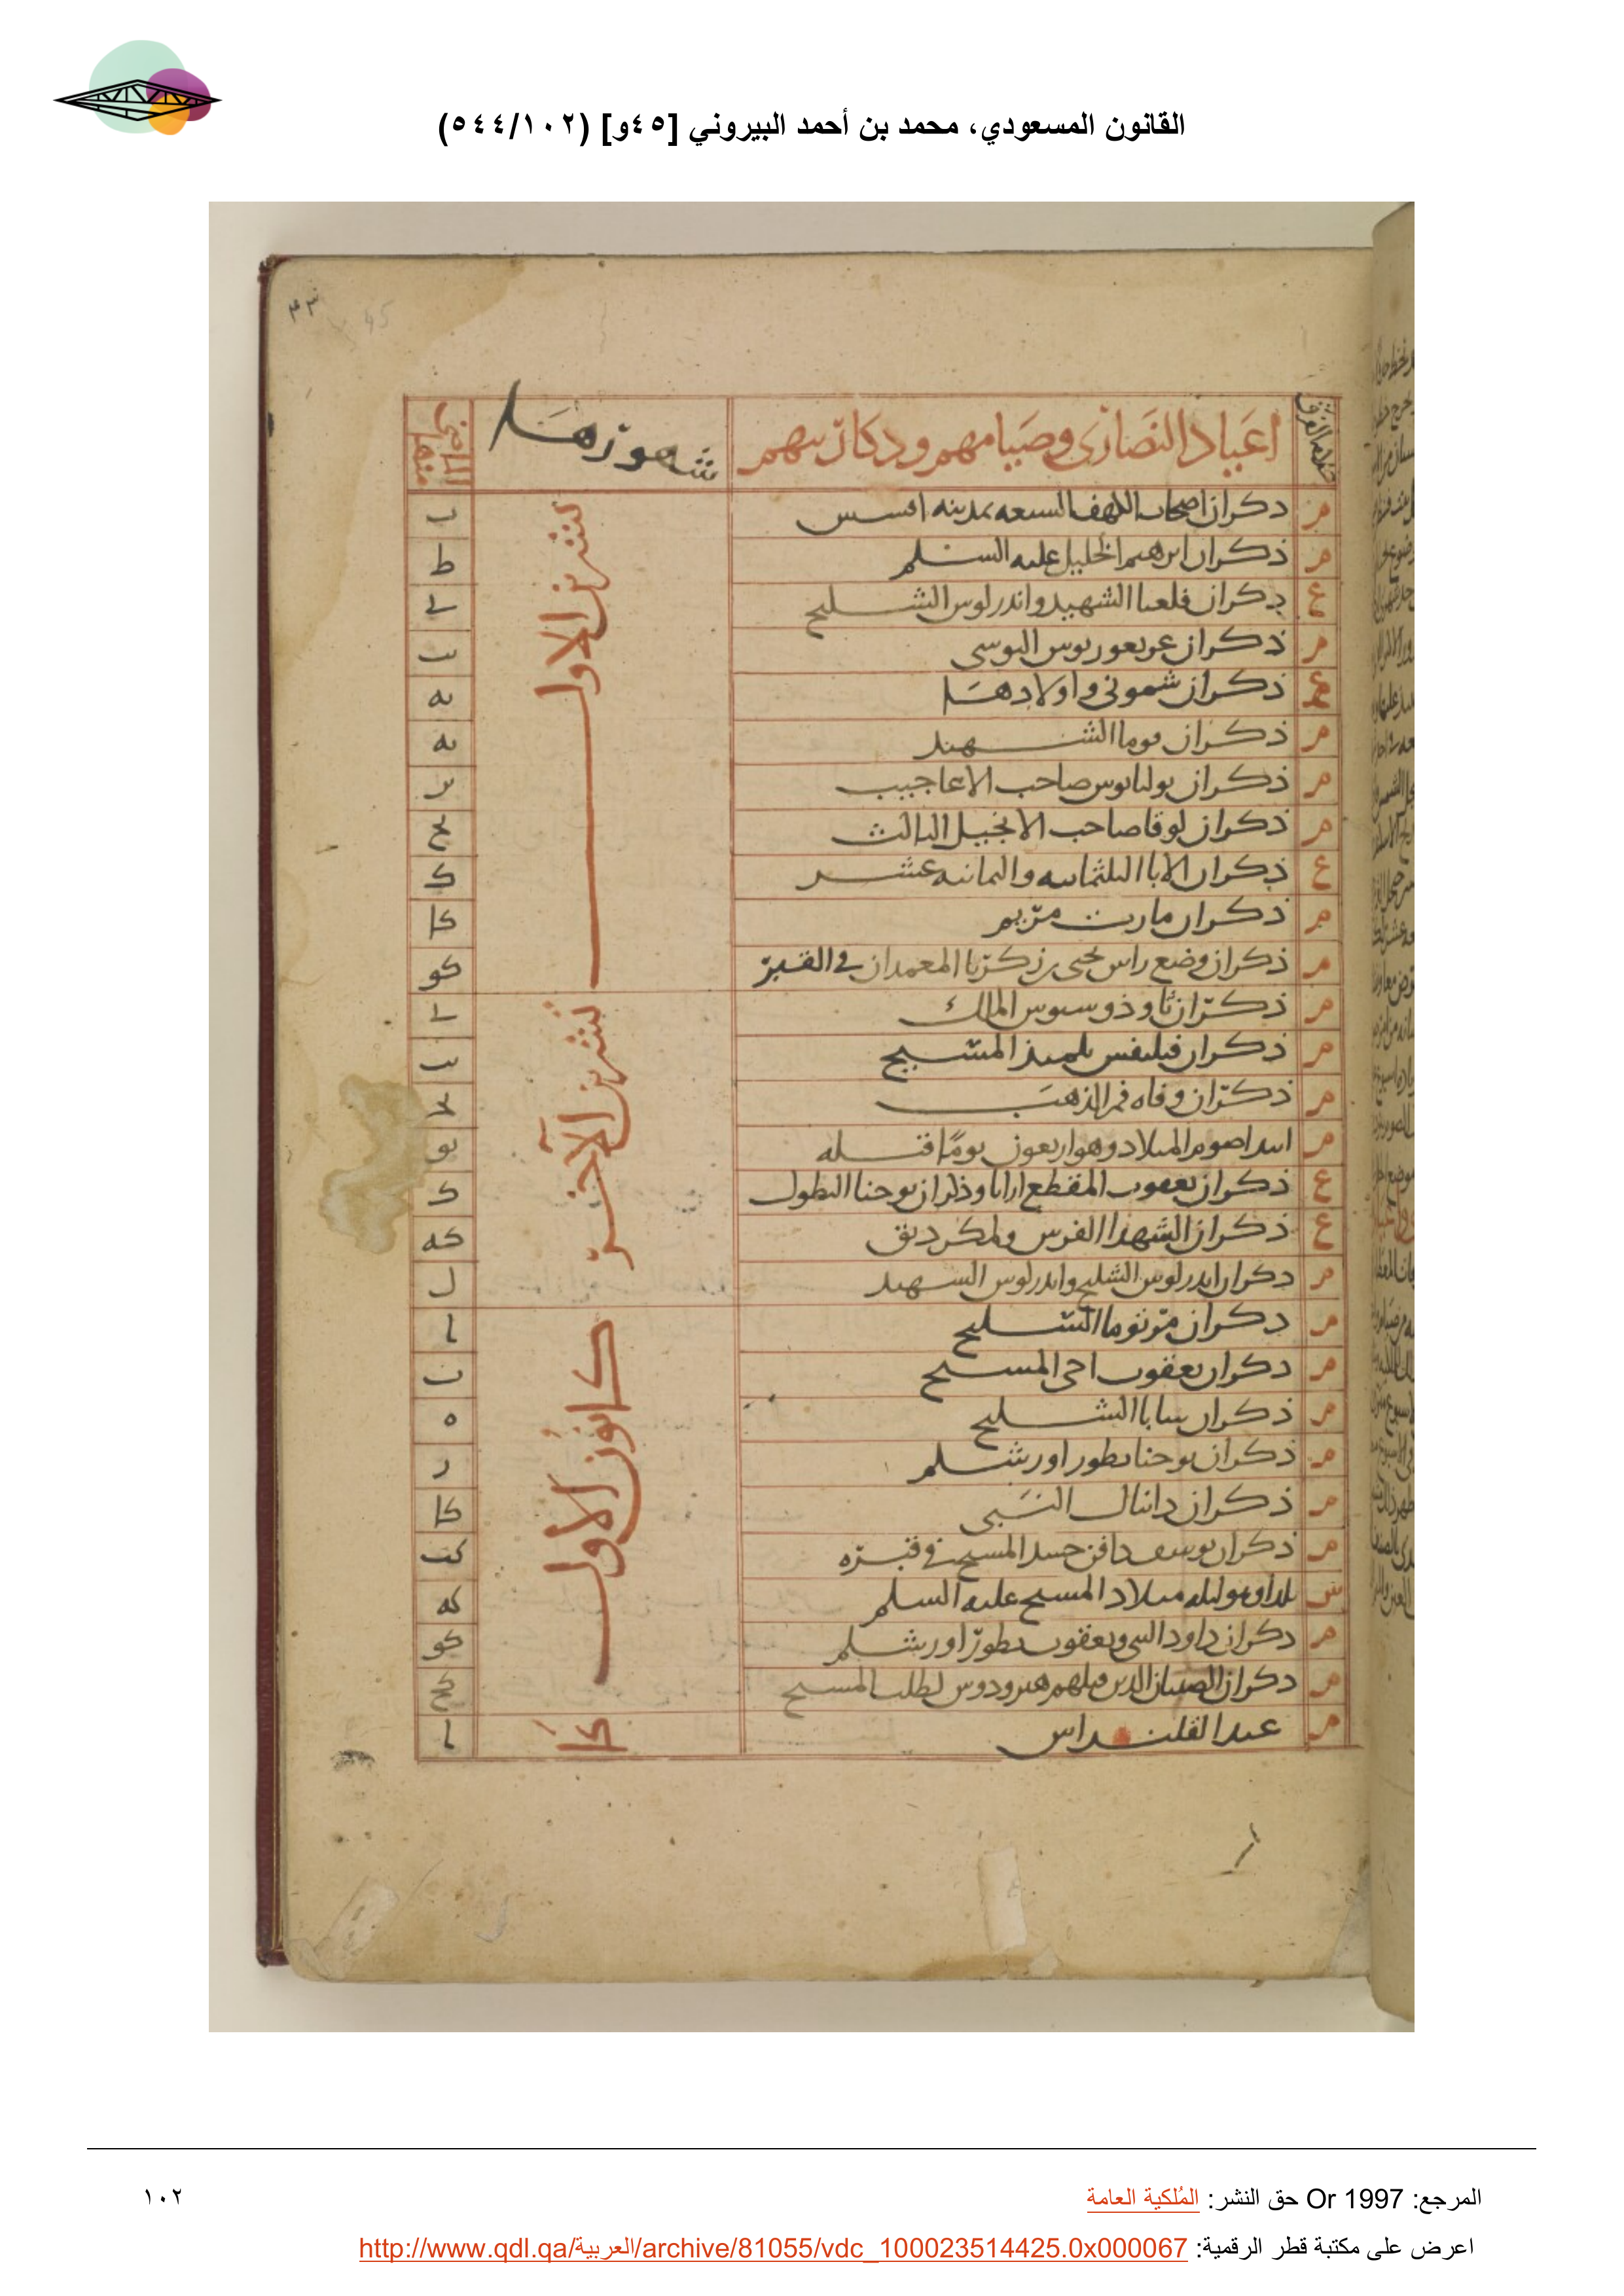 القانون المسعودي، محمد بن أحمد البيروني [٤٥و] (٥٤٤/١٠٢)
٤٣ 45
اعياد النصارى وصيامهم وذكارينهم شهورها الماضي منها
م ذكران اصحاب الكهف السبعه بمدينه افسس تشرين الاول ب
م ذكران ابرهيم الخليل عليه السلم ط
ع ذكران الشهيد واندرلوس الشليح ي
م ذكران يب
ذكران شموني واولادها يه
م ذكران توما الشهيد يه
م ذكران بوليانوس صاحب الاعاجيب يز
م ذكران لوقا صاحب الانجيل الثالث يح
ع ذكران الابا الثلثمايه والثمانيه عشر ك
م ذكران مارت مريم كا
م ذكران وضع راس يحيى بن زكريا المعمدان في القبر كو
م ذكران ثاوذوسيوس الملك تشرين الآخر ي
م ذكران فيليفس تلميذ المسيح يب
م ذكران وفاه فم الذهب يج
م ابتدا صوم الميلاد وهو اربعون يوما قبله يو
ع ذكران يعقوب المقطع ارابا وذكران يوحنا البطول ك
ع ذكران الشهدا الفرس كه
م ذكران اندرلوس الشليح واندرلوس الشهيد ل
م ذكران مر توما الشليح كانون الاول ا
م ذكران يعقوب اخي المسيح ب
م ذكران سابا الشليح ه
م ذكران يوحنا بطور اورشلم ز
م ذكران دانيال النبي كا
م ذكران يوسف دافن جسد المسيح في قبره كب
يلدا وهو ليله ميلاد المسيح عليه السلم كه
م ذكران داود النبي ويعقوب بطور اورشلم كو
م ذكران الصبيان الذين قتلهم هيرودوس لطلب المسيح كح
م عيد القلنداس كا ا
المرجع: Or 1997 حق النشر: المُلكية العامة
١٠٢
اعرض على مكتبة قطر الرقمية: http://www.qdl.qa/العربية/archive/81055/vdc_100023514425.0x000067